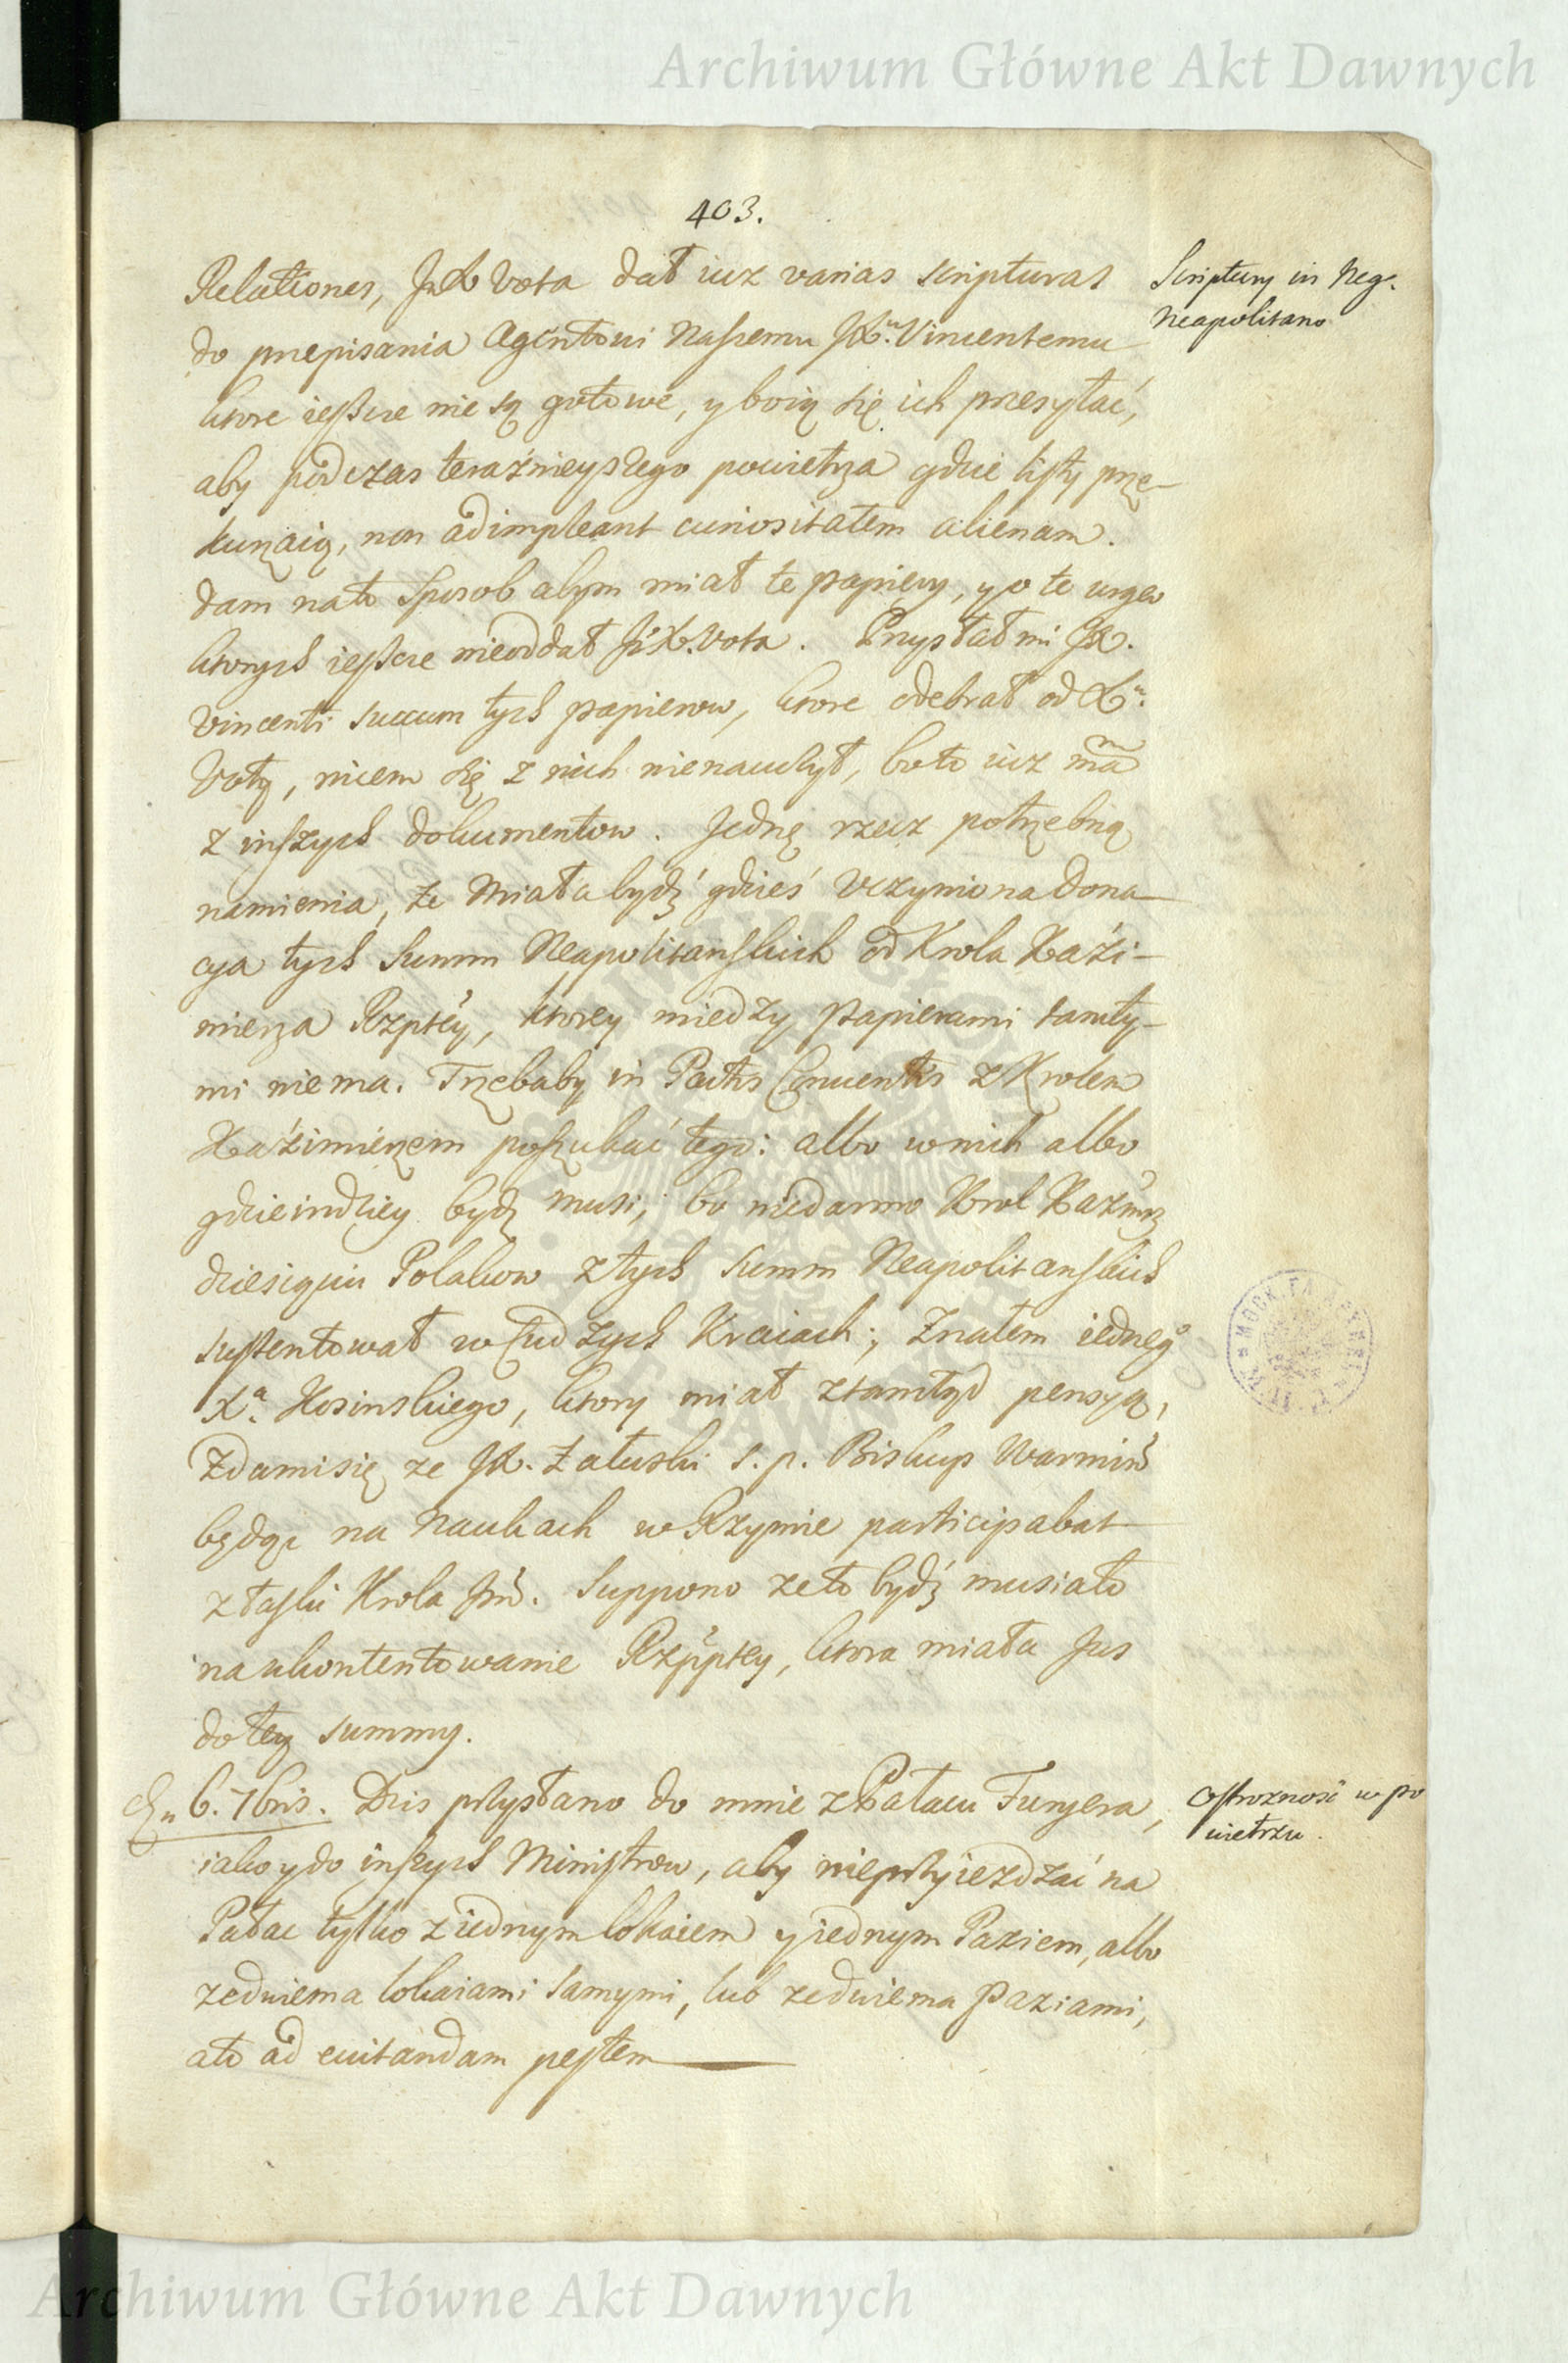 Archiwum Główne Akt Dawnych
403.
Relationes, JX Vota dał iuz varias scripturas
Scriptury in Neg.
Neapolitano
do przepisania Agentowi Naszemu JX. Vincentemu
ktore ieszcze nie są gotowe, y boią się ich przesyłać,
aby podczas teraźnieyszego powietrza gdzie listy prze-
kurzaią, non adimpleant curiositatem alienam.
dam na to sposob abym miał te papiery, y o te urgeo
ktorych ieszcze nieoddał JX. Vota. Przysłał mi JX.
Vincenti succum tych papierow, ktore odebrał od X.
Voty, nicem się z nich nienauczył, bo to iuz mam
z inszych dokumentow. Jednę rzecz potrzebną
namienia, ze miała bydź gdzieś Vczyniona dona-
cya tych Summ Neapolitanskich od Krola Kaźi-
mierza Rzptey, ktorey między papierami tamty-
mi niema. Trzebaby in Pactis Conventis z Krolem
Kaźimierzem poszukać tego: albo w nich albo
gdzieindziey bydź musi, bo niedarmo Krol Kazimrz
dziesiąciu Polakow z tych Summ Neapolitanskich
sustentował w Cudzych Kraiach; Znałem iednego
Xa. Kosinskiego, ktory miał ztamtąd pensyą,
Zdamisię ze JX. Załuski s. p. Biskup Warmin
będąc na Naukach w Rzymie participabat
z łaski Krola Jm. Suppono ze to bydź musiało
na ukontentowanie Rzpptey, ktora miała Jus
do tey summy.
6. 7bris. Dzis przysłano do mnie z Pałacu Furyera,
Ostroznosc w po
wietrzu.
iako y do inszych Ministrow, aby nieprzyiezdzać na
Pałac tylko z iednym lokaiem y iednym Paziem, albo
ze dwiema lokaiami samymi, lub ze dwiema Paziami,
a to ad evitandam pestem
Archiwum Główne Akt Dawnych